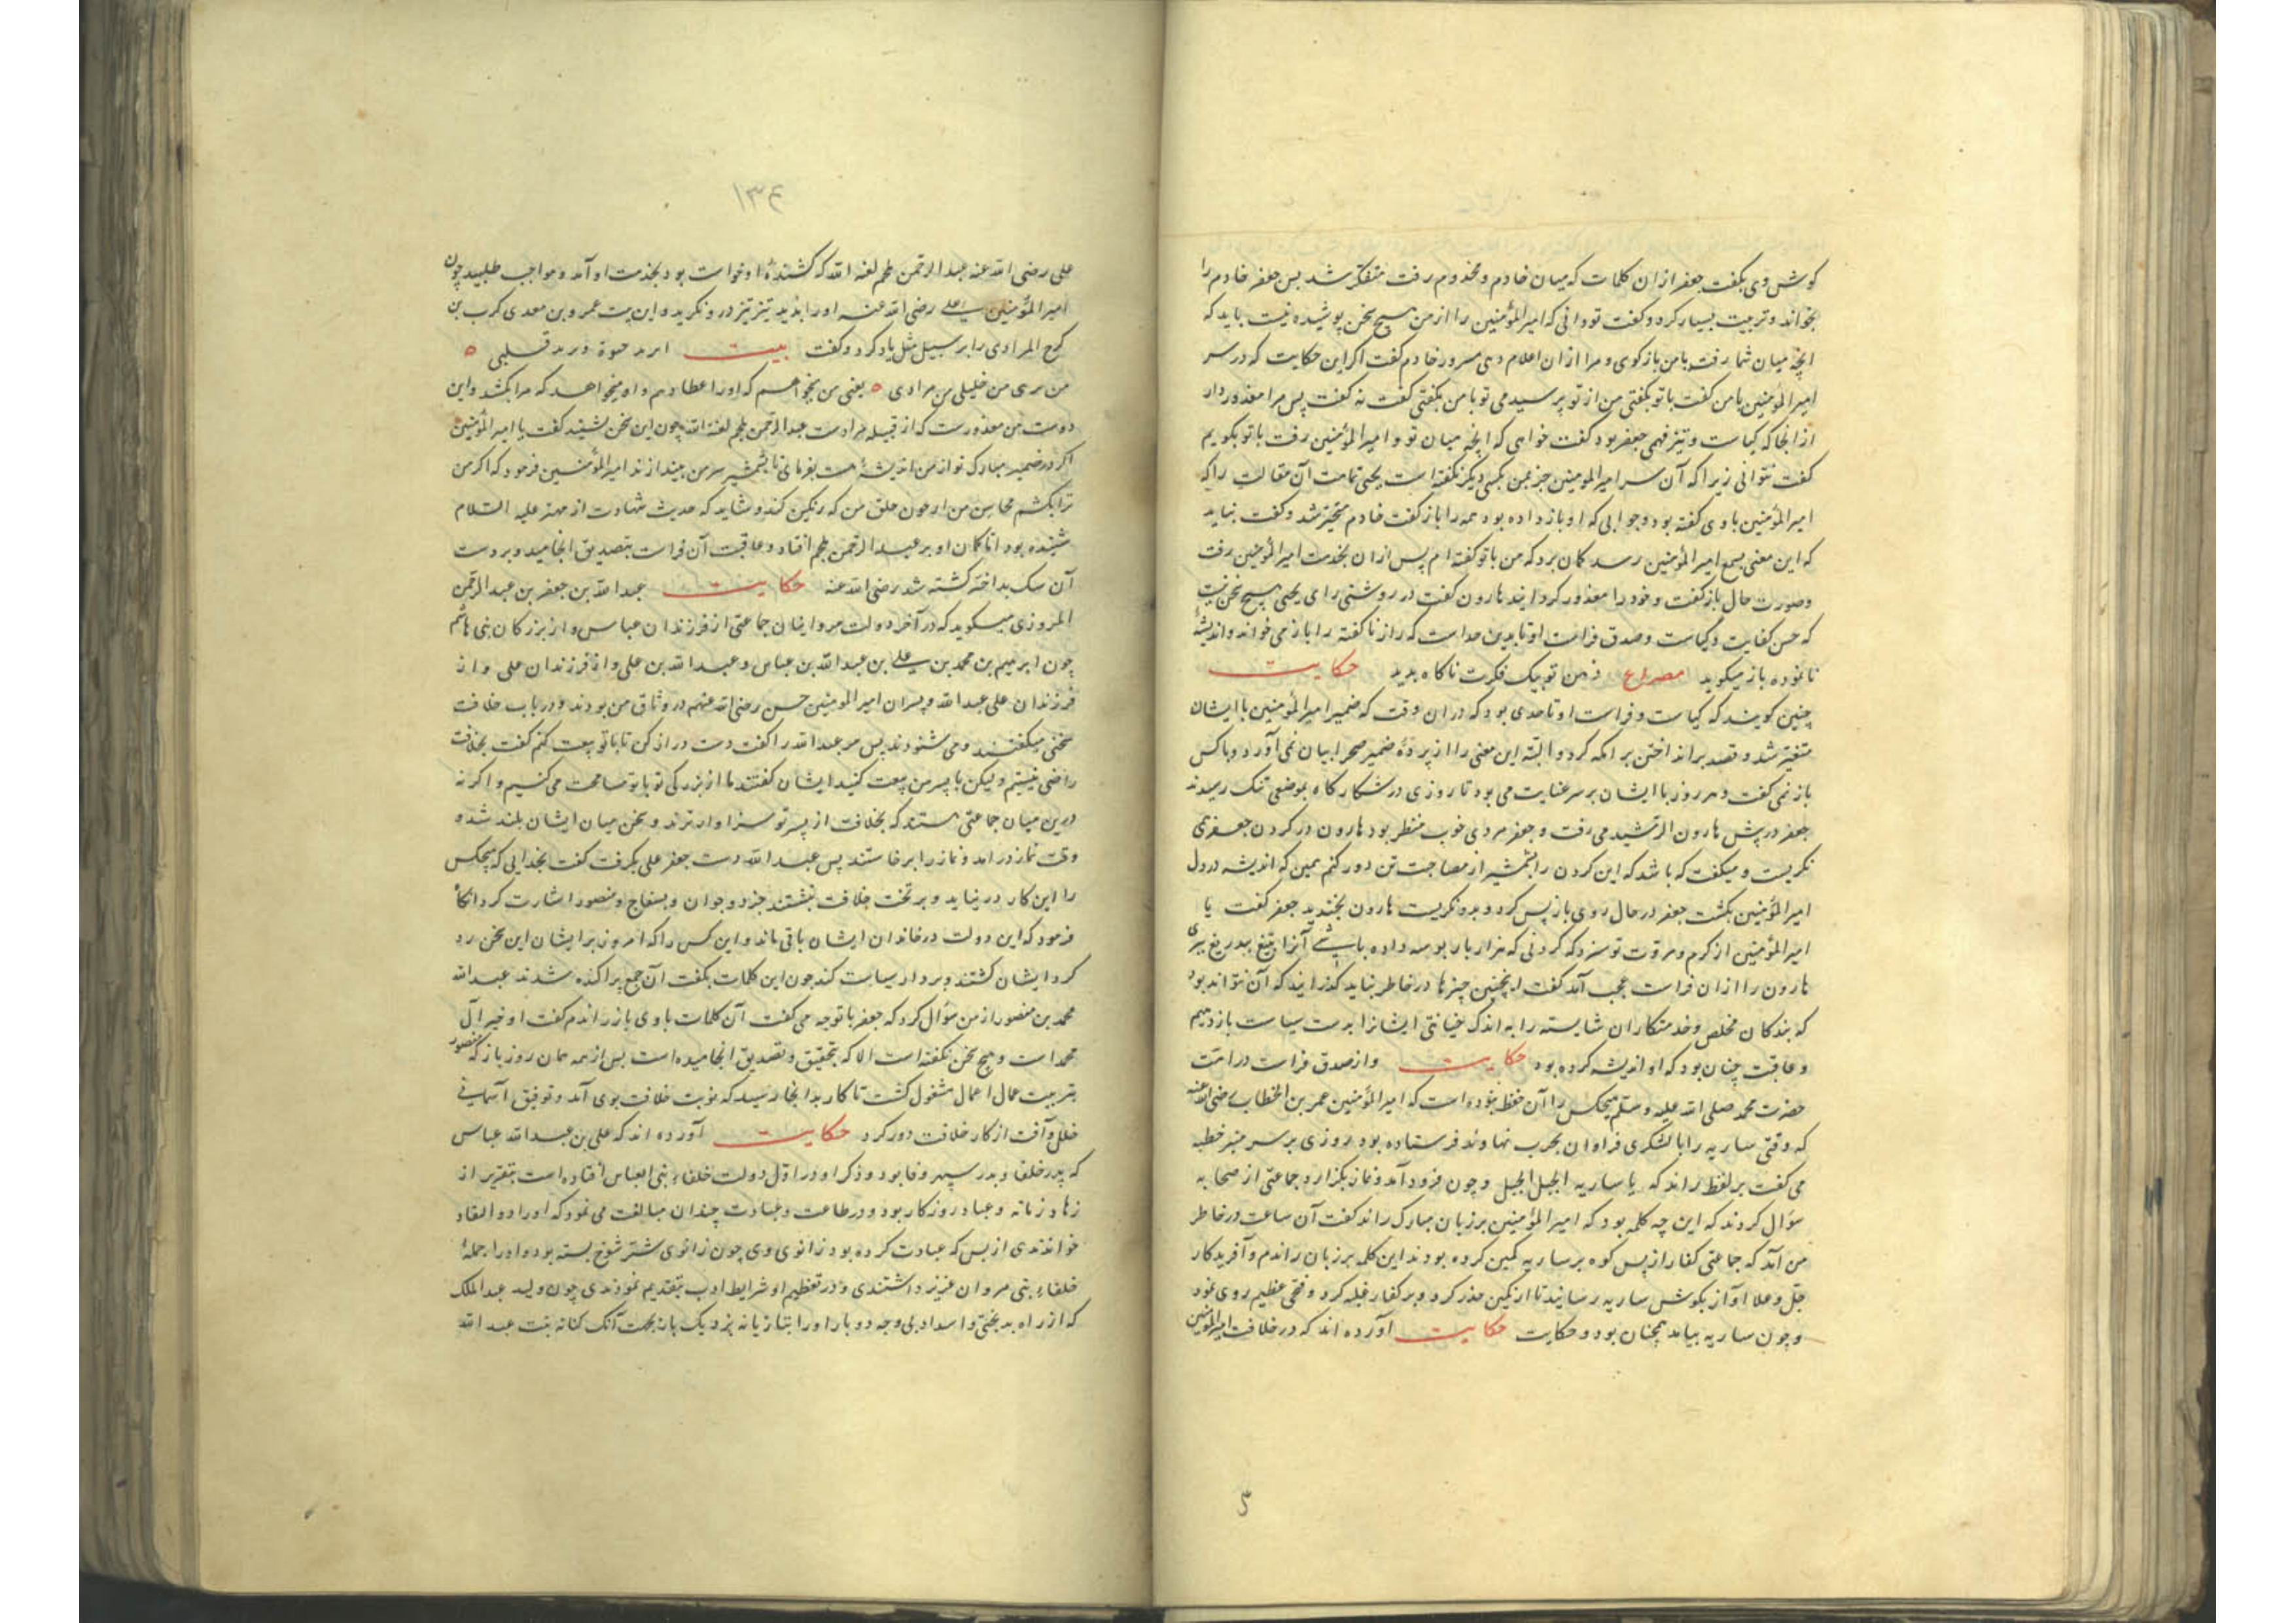 گوش وی بگفت جعفر ازان کلمات که میان خادم و مخدوم رفت متفکر شد پس جعفر خادم را
بخواند و تربیت بسیار کرد و گفت تو دانی که امیرالمؤمنین را از من هیچ سخن پوشیده نیست باید که
آنچه میان شما رفت با من بازگوی و مرا ازان اعلام دهی مسرور خادم گفت اگر این حکایت که در سر
امیرالمؤمنین با من گفت با تو بگفتی من از تو پرسیدمی تو با من بگفتی گفت نه گفت پس مرا معذور دار
ازانجا که کیاست و تیزفهمی جعفر بود گفت خواهی که آنچه میان تو و امیرالمؤمنین رفت با تو بگویم
گفت نتوانی زیرا که آن سر امیرالمومنین جز بمن بکسی دیگر نگفته است یحیی تمامت آن مقالت را که
امیرالمؤمنین با وی گفته بود و جوابی که او باز داده بود همه را باز گفت خادم متحیر شد و گفت نباید
که این معنی بسمع امیرالمؤمنین رسد گمان برد که من با تو گفته ام پس ازان بخدمت امیرالمؤمنین رفت
و صورت حال باز گفت و خود را معذور گردانید هارون گفت در روشنی رای یحیی هیچ سخن نیست
که حسن کفایت و کیاست و صدق فراست او تا بدین حد است که راز ناگفته را باز می خواند و اندیشهٔ
نانموده باز میگوید مصراع ذهن تو بیک فکرت ناگاه بدید حکایت
چنین گویند که کیاست و فراست او تا حدی بود که دران وقت که ضمیر امیرالمؤمنین با ایشان
متغیر شد و قصد برانداختن برامکه کرد و البته این معنی را از پردهٔ ضمیر بصحرا بیان نمی آورد و با کس
باز نمی گفت و هر روز با ایشان بر سر عنایت می بود تا روزی در شکارگاه بموضعی تنگ رسیدند
جعفر در پیش هارون الرشید می رفت و جعفر مردی خوب منظر بود هارون در گردن جعفر می
نگریست و میگفت که باشد که این گردن را بشمشیر از مصاحبت تن دور کنم همین که اندیشه در دل
امیرالمؤمنین بگشت جعفر در حال روی باز پس کرد و بدو نگریست هارون بخندید جعفر گفت یا
امیرالمؤمنین از کرم و مروت تو سزد که گردنی که هزار بار بوسه داده باشی آنرا بتیغ بیدریغ ببری
هارون را ازان فراست عجب آمد گفت اینچنین چیزها در خاطر نباید گذرانید که آن نتواند بود
که بندگان مخلص و خدمتکاران شایسته را به اندک خیانتی ایشانرا بدست سیاست باز دهیم
و عاقبت چنان بود که او اندیشه کرده بود حکایت و از صدق فراست در امت
حضرت محمد صلی الله علیه وسلم هیچکس را آن حفظ نبوده است که امیرالمؤمنین عمر بن الخطاب رضی الله عنه
که وقتی ساریه را با لشکری فراوان بحرب نهاوند فرستاده بود روزی بر سر منبر خطبه
می گفت بر لفظ راند که یا ساریه الجبل الجبل و چون فرود آمد و نماز بگزارد جماعتی از صحابه
سؤال کردند که این چه کلمه بود که امیرالمؤمنین بر زبان مبارک راند گفت آن ساعت در خاطر
من آمد که جماعتی کفار از پس کوه بر ساریه کمین کرده بودند این کلمه بر زبان راندم و آفریدگار
جل و علا آواز بگوش ساریه رسانید تا از کمین حذر کرد و بر کفار غلبه کرد و فتحی عظیم روی نمود
و چون ساریه بیامد همچنان بود و حکایت حکایت آورده اند که در خلافت امیرالمؤمنین
۱۳۴
علی رضی الله عنه عبدالرحمن ملجم لعنه الله که کشندهٔ او خواست بود بخدمت او آمد و مواجب طلبید چون
امیرالمؤمنین علی رضی الله عنه او را بدید تیز تیز درو نگرید و این بیت عمرو بن معدی کرب بن
المرادی را بر سبیل مثل یاد کرد و گفت بیت
من خلیلی من مرادی یعنی من میخواهم که او را عطا دهم و او میخواهد که مرا بکشد و این
دوست من معذورست که از قبیله مرادست عبدالرحمن ملجم لعنه الله چون این سخن بشنید گفت یا امیرالمؤمنین
اگر در ضمیر مبارک تو از من اندیشهٔ هست بفرمای تا بشمشیر سر من بیندازند امیرالمؤمنین فرمود که اگر من
ترا بکشم محاسن من از خون حلق من که رنگین کند و شاید که حدیث شهادت از مهتر علیه السلام
شنیده بود اما گمان او بر عبدالرحمن ملجم افتاد و عاقبت آن فراست بتصدیق انجامید و بر دست
آن سگ کشته شد رضی الله عنه حکایت عبدالله بن جعفر بن عبدالرحمن
المروزی میگوید که در آخر دولت مروانیان جماعتی از فرزندان عباس و از بزرگان بنی هاشم
چون ابرهیم بن محمد بن علی بن عبدالله بن عباس و عبدالله بن علی و از فرزندان علی و از
فرزندان علی عبدالله و پسران امیرالمومنین حسن رضی الله عنهم در وثاق من بودند و در باب خلافت
سخنی میگفتند و می شنودند پس مر عبدالله را گفت دست دراز کن تا با تو بیعت کنم گفت بخلافت
راضی نیستم ولیکن با پسر من بیعت کنید ایشان گفتند ما از بزرگی تو با تو مسامحت می کنیم و اگر نه
درین میان جماعتی هستند که بخلافت از پسر تو سزاوارترند و سخن میان ایشان بلند شد و
وقت نماز درآمد و نماز را برخاستند پس عبدالله دست جعفر علی بگرفت گفت بخدایی که هیچکس
را این کار در نیاید و بر تخت خلافت ننشیند جز دو جوان و بسفاح و منصور اشارت کرد آنگاه
فرمود که این دولت در خاندان ایشان باقی ماند و این کس را که امروز بر ایشان این سخن رد
کرد ایشان کشند و بر دار سیاست کنند چون این کلمات بگفت آن جمع پراکنده شدند عبدالله
محمد بن منصور از من سؤال کرد که جعفر با تو چه می گفت آن کلمات با وی باز راندم گفت او خیر آل
محمد است و هیچ سخن نگفته است الا که بتحقیق و تصدیق انجامیده است پس از همه همان روز باز که منصور
بتربیت عمال اعمال مشغول گشت تا کار بدانجا رسید که نوبت خلافت بوی آمد و توفیق آسمانی
خلل و آفت از کار خلافت دور کرد حکایت آورده اند که علی بن عبدالله عباس
که پدر خلفا و بدر سپهر وفا بود و ذکر او در اول دولت خلفاء بنی العباس افتاده است بتقریر از
زهاد زمانه و عباد روزگار بود و در طاعت و عبادت چندان مبالغت می نمود که او را ذو الثفنات
خواندندی از بس که عبادت کرده بود زانوی وی چون زانوی شتر شوخ بسته بود و او را جملهٔ
خلفاء بنی مروان عزیز داشتندی و در تعظیم او شرایط ادب بتقدیم نمودندی چون ولید عبدالملک
که از راه بدبختی و بی وجه دو بار او را بتازیانه بزد یک بار بجهت آنک بنت عبدالله